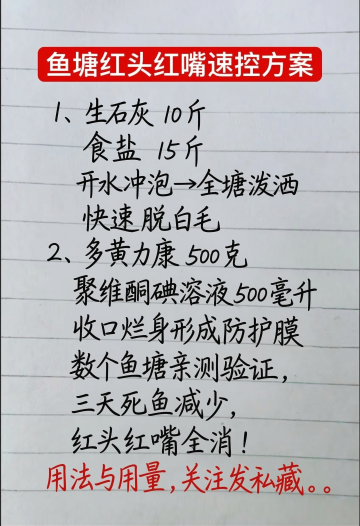 鱼塘红头红嘴速控方案
1、生石灰 10斤
食盐 15斤
开水冲泡→全塘泼洒
快速脱白毛
2、多黄力康500克
聚维酮碘溶液500毫升
收口烂身形成防护膜
数个鱼塘亲测验证，
三天死鱼减少，
红头红嘴全消！
用法与用量，关注发私藏。。